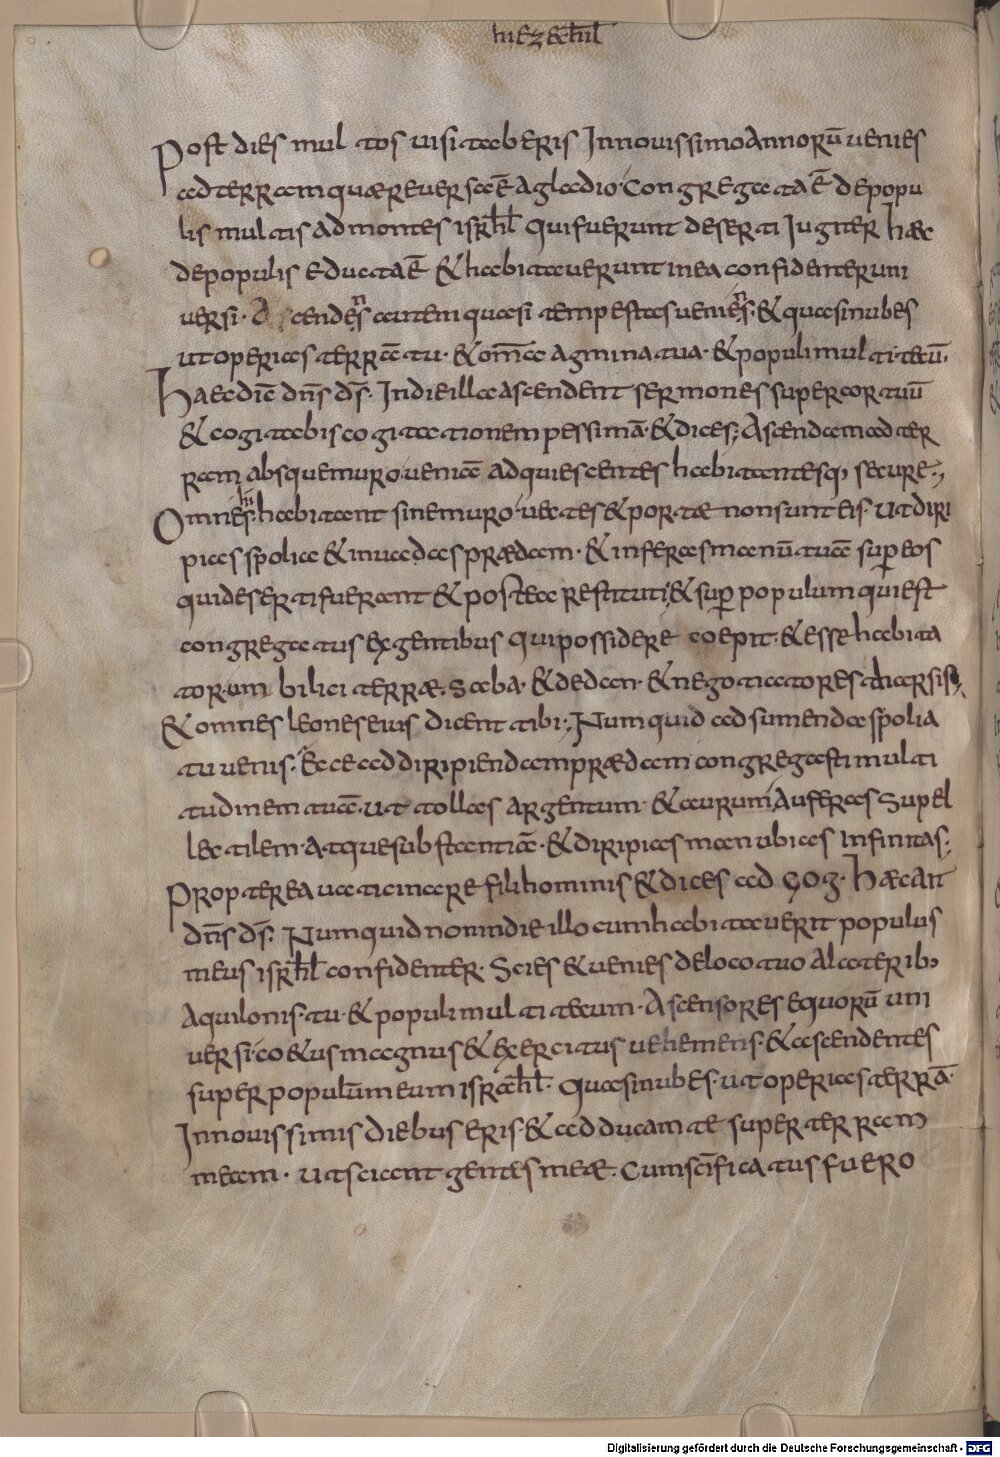 hiezechiel
Post dies multos visitaberis In novissimo Annorū venies
ad terram quæ reversa ē A gladio Congregata ē de popu
lis multis Ad montes isrƚ Qui fuerunt deserti Jugiter Hæc
de populis educta ē & habitaverunt in ea confidenter uni
versi. Ascendens autem quasi tempestas veniens & quasi nubes
ut operias terrā tu. & om̄a Agmina tua & populi multi tecū.
Haec dic̄ dn̄s d̄s. In die illa ascendent sermones super cor tuū
& cogitabis cogitationem pessimā & dices; Ascendam ad ter
ram absque muro veniā Ad quiescentes habitantesq; secure;
Omnes hii habitant sine muro vectes & portæ non sunt eis. Ut diri
pias spolia & invadas prædam. & inferas manū tuā sup eos
qui deserti fuerant & postea restituti & sup populum qui est
congregatus ex gentibus Qui possidere coepit & esse habita
torum bilici terræ. Saba. & dedan. & negotiatores tharsis
& omnes leones eius dicent tibi; Numquid ad sumenda spolia
tu venis. Ecce ad diripiendam prædam congregasti multi
tudinem tuā. ut tolleas Argentum & aurum Auferas supel
lectilem. Atque substantiā & diripias manubias Infinitas;
Propterea vaticinare fili hominis & dices ad Gog. Hæc Ait
dn̄s d̄s. Numquid non in die illo cum habitaverit populus
meus isrƚ confidenter. Scies & venies de loco tuo A laterib;
Aquilonis. tu & populi multi tecum. Ascensores equorū uni
versi co&us magnus & exercitus vehemens & ascendentes
super populum meum isrƚ. Quasi nubes. ut operias terrā.
In novissimis diebus eris & adducam te super terram
meam. ut sciant gentes meæ. Cum sc̄ificatus fuero
Digitalisierung gefördert durch die Deutsche Forschungsgemeinschaft - DFG